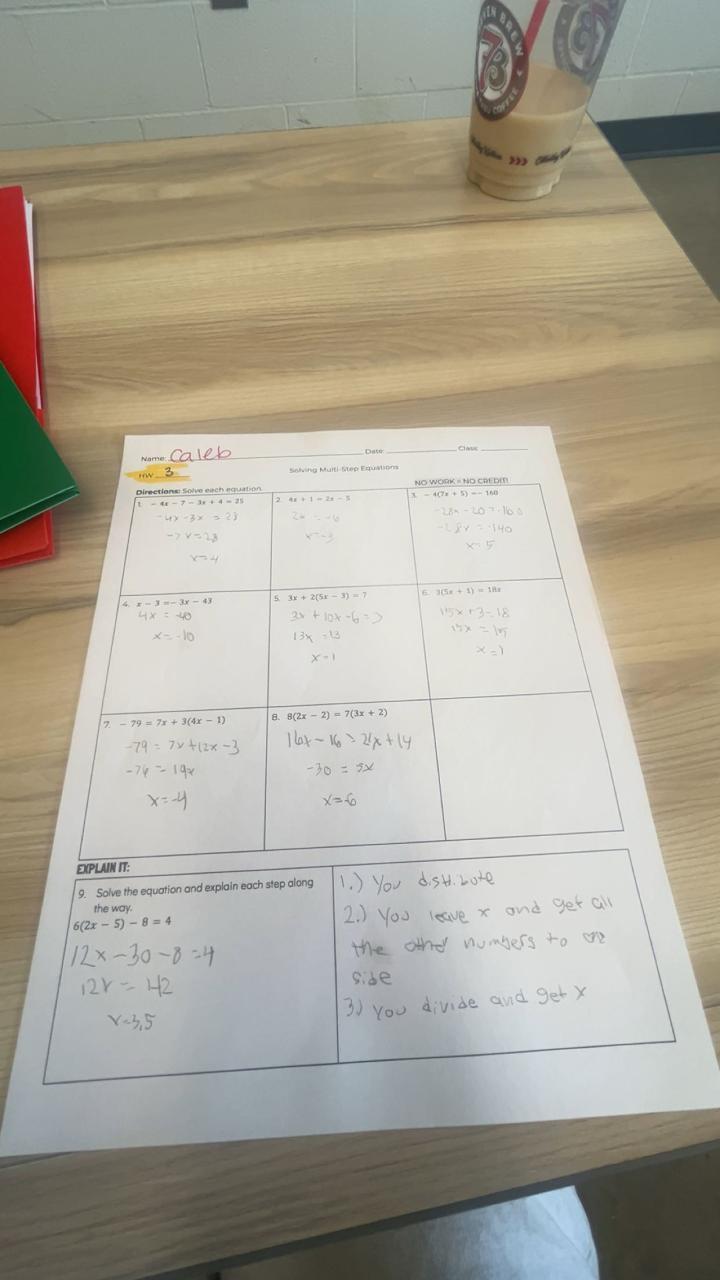 EN BREW
73
COFFEE
>>>
Name: Caleb Date: Class:
HW 3 Solving Multi-Step Equations
Directions: Solve each equation. NO WORK = NO CREDIT!
1. - 4x - 7 - 3x + 4 = 25
-4x -3x = 28
-7x = 28
x = 4
2. 4x + 1 = 2x - 5
2x = -6
x = -3
3. - 4(7x + 5) = - 160
-28x -20 = -160
-28x = -140
x = 5
4. x - 3 = - 3x - 43
4x = -40
x = -10
5. 3x + 2(5x - 3) = 7
3x + 10x -6 = 7
13x = 13
x = 1
6. 3(5x + 1) = 18x
15x + 3 = 18
15x = 15
x = 1
7. - 79 = 7x + 3(4x - 1)
-79 = 7x + 12x - 3
-76 = 19x
x = -4
8. 8(2x - 2) = 7(3x + 2)
16x - 16 = 21x + 14
-30 = 5x
x = -6
EXPLAIN IT:
9. Solve the equation and explain each step along
the way.
6(2x - 5) - 8 = 4
12x - 30 - 8 = 4
12x = 42
x = 3,5
1.) You distribute
2.) You leave x and get all
the other numbers to one
side
3.) You divide and get x